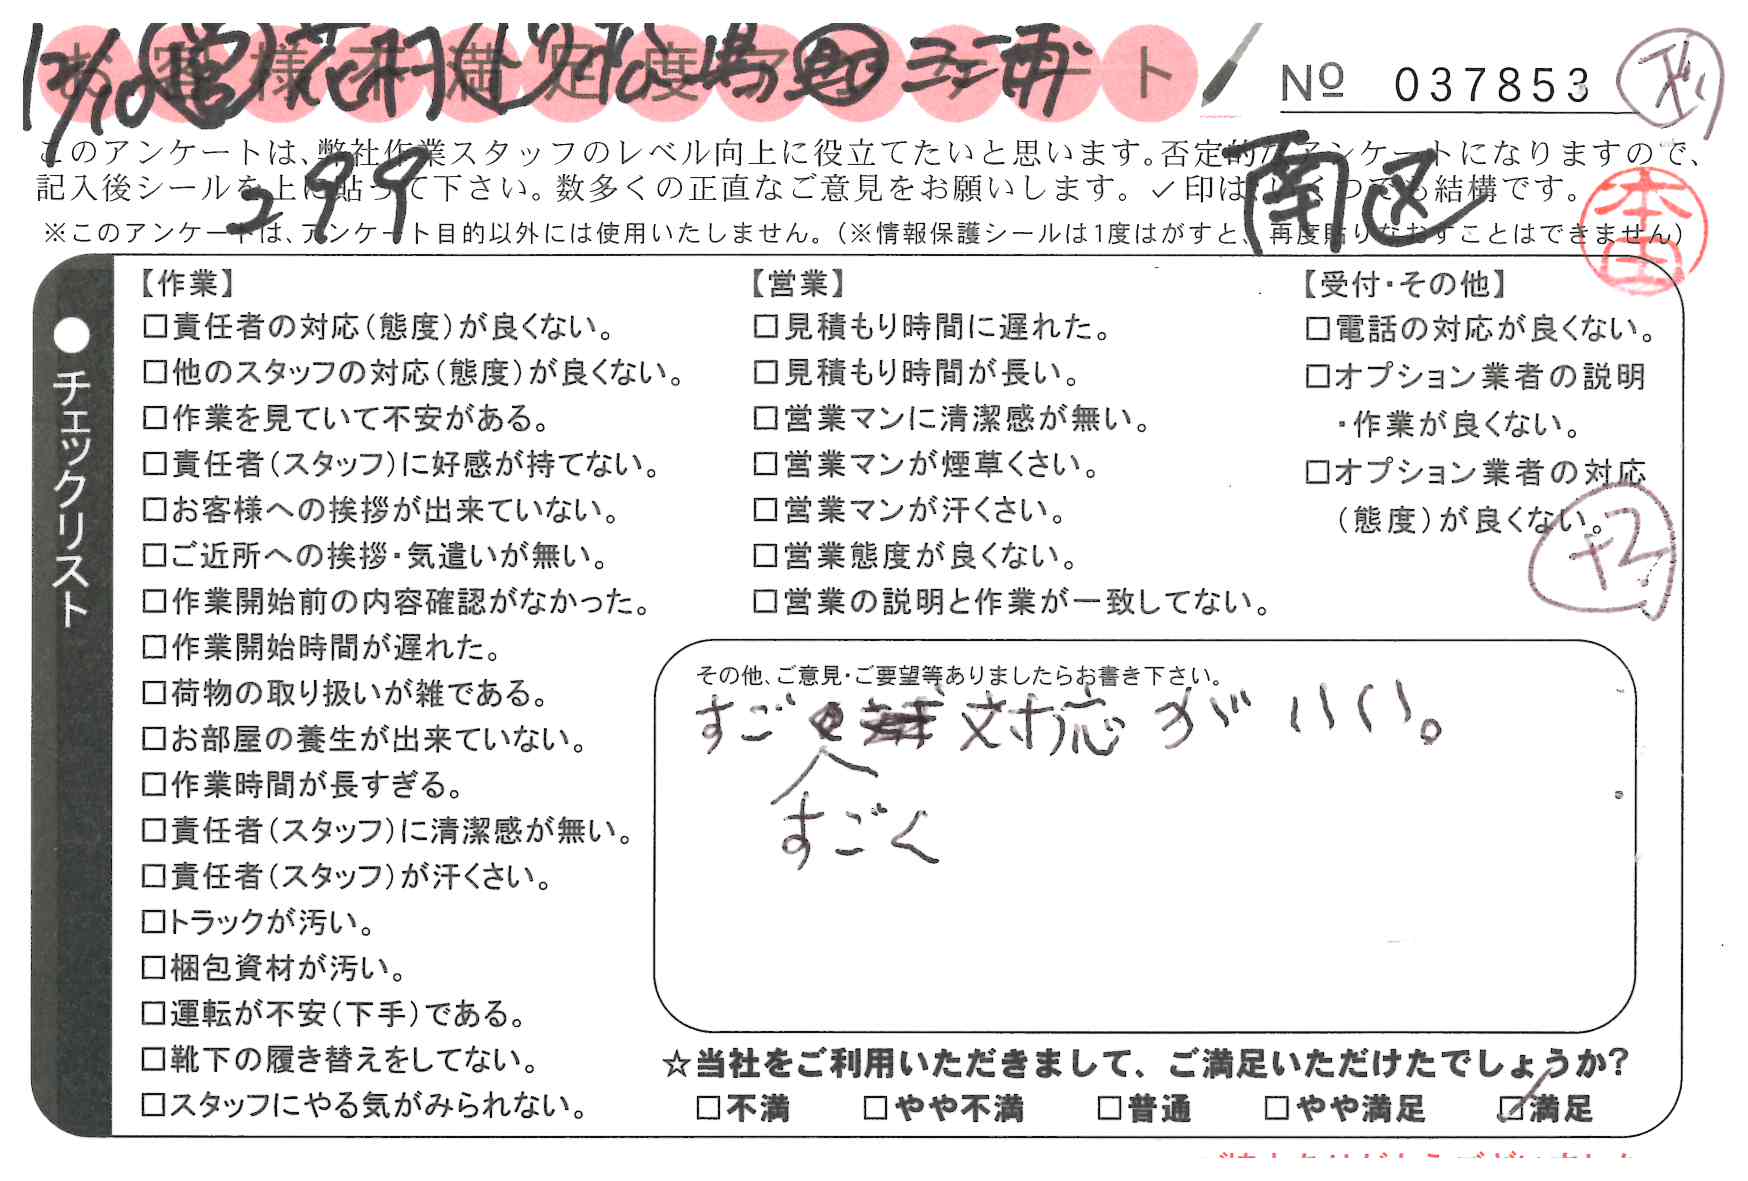 12/10 営 花村 松島 江浦
お客様不満足度アンケート
No 037853
このアンケートは、弊社作業スタッフのレベル向上に役立てたいと思います。否定的なアンケートになりますので、
299 南区
記入後シールを上に貼って下さい。数多くの正直なご意見をお願いします。✓印はいくつでも結構です。
本田
※このアンケートは、アンケート目的以外には使用いたしません。(※情報保護シールは1度はがすと、再度貼りなおすことはできません)
●チェックリスト
【作業】
□責任者の対応(態度)が良くない。
□他のスタッフの対応(態度)が良くない。
□作業を見ていて不安がある。
□責任者(スタッフ)に好感が持てない。
□お客様への挨拶が出来ていない。
□ご近所への挨拶・気遣いが無い。
□作業開始前の内容確認がなかった。
□作業開始時間が遅れた。
□荷物の取り扱いが雑である。
□お部屋の養生が出来ていない。
□作業時間が長すぎる。
□責任者(スタッフ)に清潔感が無い。
□責任者(スタッフ)が汗くさい。
□トラックが汚い。
□梱包資材が汚い。
□運転が不安(下手)である。
□靴下の履き替えをしてない。
□スタッフにやる気がみられない。
【営業】
□見積もり時間に遅れた。
□見積もり時間が長い。
□営業マンに清潔感が無い。
□営業マンが煙草くさい。
□営業マンが汗くさい。
□営業態度が良くない。
□営業の説明と作業が一致してない。
【受付・その他】
□電話の対応が良くない。
□オプション業者の説明
・作業が良くない。
□オプション業者の対応
(態度)が良くない。
+2
その他、ご意見・ご要望等ありましたらお書き下さい。
すごく 対応がいい。
すごく
☆当社をご利用いただきまして、ご満足いただけたでしょうか?
□不満 □やや不満 □普通 □やや満足 ☑満足